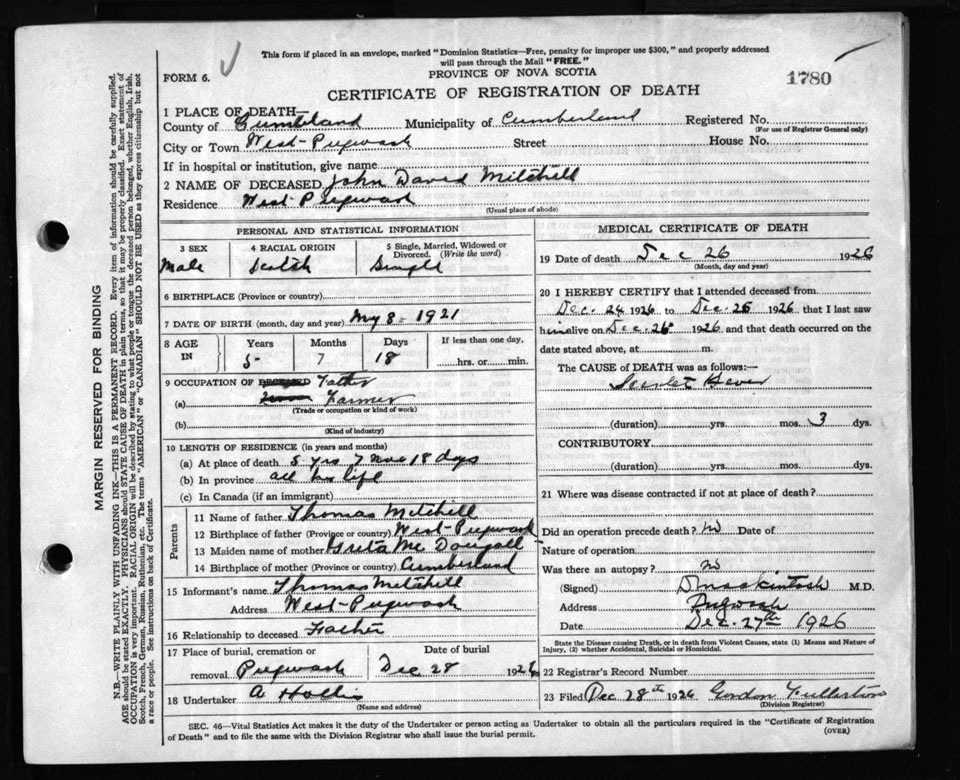 This form if placed in an envelope, marked "Dominion Statistics—Free, penalty for improper use $300," and properly addressed
will pass through the Mail "FREE."
FORM 6.
PROVINCE OF NOVA SCOTIA
1780
CERTIFICATE OF REGISTRATION OF DEATH
1 PLACE OF DEATH—
County of Cumberland Municipality of Cumberland Registered No.
(For use of Registrar General only)
City or Town West-Pugwash Street House No.
If in hospital or institution, give name
2 NAME OF DECEASED John David Mitchell
Residence West-Pugwash
(Usual place of abode)
PERSONAL AND STATISTICAL INFORMATION
3 SEX 4 RACIAL ORIGIN 5 Single, Married, Widowed or
Divorced. (Write the word)
Male Scotch Single
6 BIRTHPLACE (Province or country)
7 DATE OF BIRTH (month, day and year) May 8 - 1921
8 AGE IN Years Months Days If less than one day,
5 7 18 hrs. or min.
9 OCCUPATION OF DECEASED Father
(a) Farmer
(Trade or occupation or kind of work)
(b)
(Kind of industry)
10 LENGTH OF RESIDENCE (in years and months)
(a) At place of death 5 yrs 7 Mos 18 days
(b) In province all his life
(c) In Canada (if an immigrant)
Parents
11 Name of father Thomas Mitchell
12 Birthplace of father (Province or country) West-Pugwash
13 Maiden name of mother Greta McDougall
14 Birthplace of mother (Province or country) Cumberland
15 Informant's name Thomas Mitchell
Address West-Pugwash
16 Relationship to deceased Father
17 Place of burial, cremation or Date of burial
removal Pugwash Dec 28 1926
18 Undertaker A Hollis
(Name and address)
MEDICAL CERTIFICATE OF DEATH
19 Date of death Dec 26 1926
(Month, day and year)
20 I HEREBY CERTIFY that I attended deceased from
Dec. 24 1926 to Dec. 25 1926 that I last saw
him alive on Dec. 26 1926 and that death occurred on the
date stated above, at m.
The CAUSE of DEATH was as follows:—
Scarlet Fever
(duration) yrs. mos. 3 dys.
CONTRIBUTORY.
(duration) yrs. mos. dys.
21 Where was disease contracted if not at place of death?
Did an operation precede death? No Date of
Nature of operation
Was there an autopsy? No
(Signed) D Mackintosh M.D.
Address Pugwash
Date Dec. 27th 1926
State the Disease causing Death, or in death from Violent Causes, state (1) Means and Nature of
Injury, (2) whether Accidental, Suicidal or Homicidal.
22 Registrar's Record Number
23 Filed Dec 28th 1926 Gordon Fullerton
(Division Registrar)
SEC. 46—Vital Statistics Act makes it the duty of the Undertaker or person acting as Undertaker to obtain all the particulars required in the "Certificate of Registration
of Death" and to file the same with the Division Registrar who shall issue the burial permit.
(OVER)
MARGIN RESERVED FOR BINDING
N.B.—WRITE PLAINLY, WITH UNFADING INK—THIS IS A PERMANENT RECORD. Every item of information should be carefully supplied.
AGE should be stated EXACTLY. PHYSICIANS should STATE CAUSE OF DEATH in plain terms, so that it may be properly classified. Exact statement of
OCCUPATION is very important. RACIAL ORIGIN will be described by stating to what people or tongue the deceased person belonged, whether English, Irish,
Scotch, French, German, Russian, Ruthenian, etc. The terms "AMERICAN" or "CANADIAN" SHOULD NOT BE USED as they express citizenship but not
a race or people. See instructions on back of Certificate.